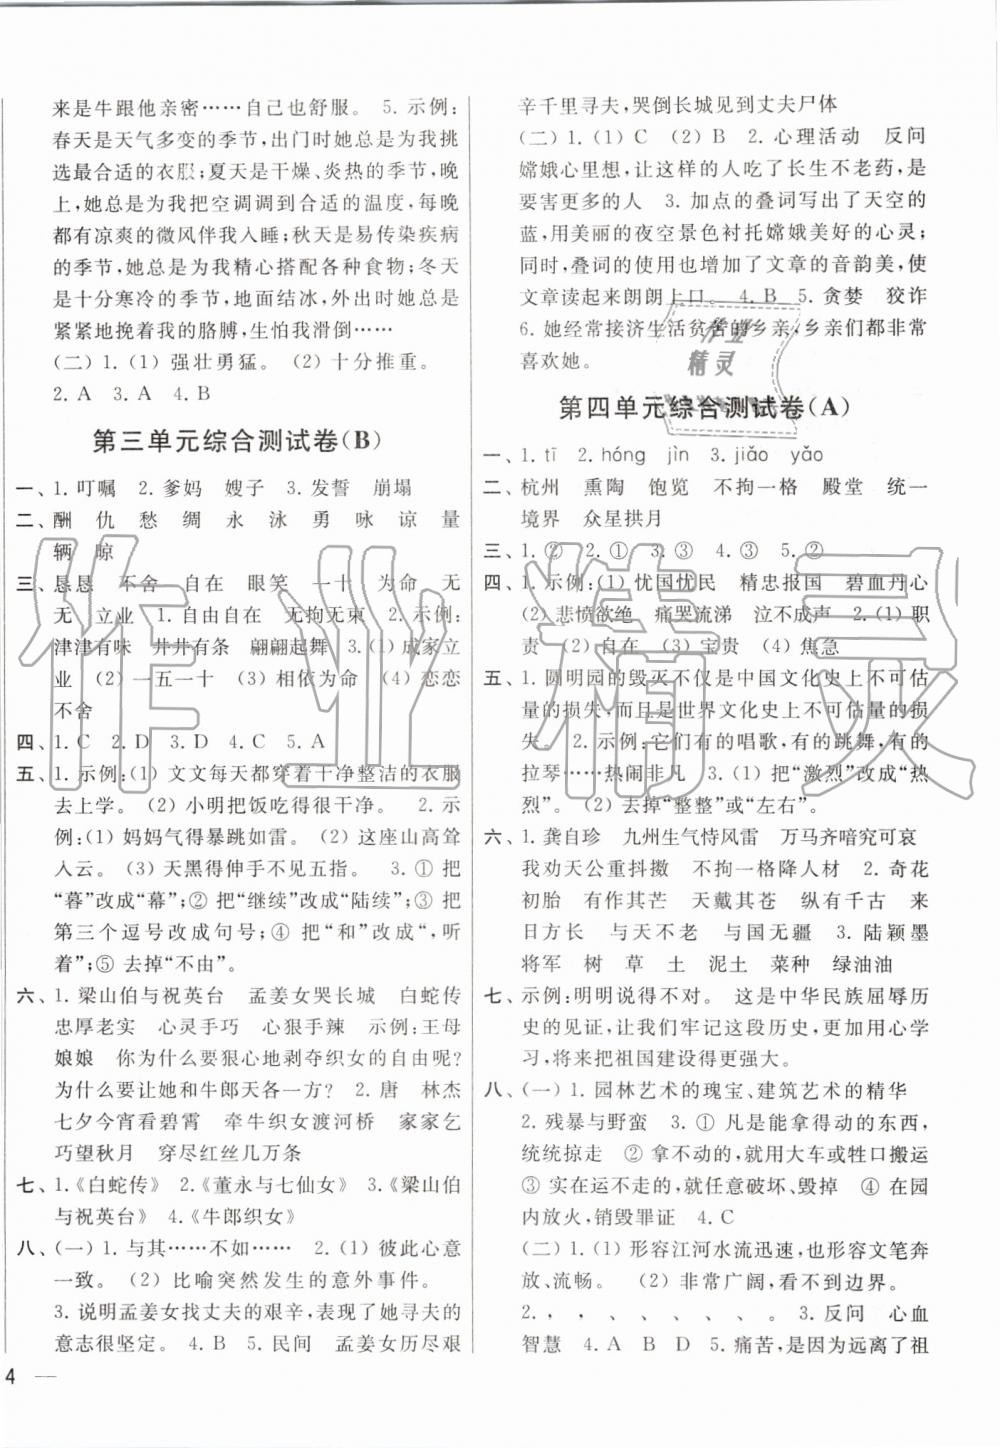 来是牛跟他亲密……自己也舒服。 5. 示例:
春天是天气多变的季节,出门时她总是为我挑
选最合适的衣服;夏天是干燥、炎热的季节,晚
上,她总是为我把空调调到合适的温度,每晚
都有凉爽的微风伴我入睡;秋天是易传染疾病
的季节,她总是为我精心搭配各种食物;冬天
是十分寒冷的季节,地面结冰,外出时她总是
紧紧地挽着我的胳膊,生怕我滑倒……
(二) 1. (1) 强壮勇猛。 (2) 十分推重。
2. A 3. A 4. B
第三单元综合测试卷(B)
一、1. 叮嘱 2. 爹妈 嫂子 3. 发誓 崩塌
二、酬 仇 愁 绸 永 泳 勇 咏 谅 量
辆 晾
三、恳恳 不舍 自在 眼笑 一十 为命 无
无 立业 1. 自由自在 无拘无束 2. 示例:
津津有味 井井有条 翩翩起舞 3. (1) 成家立
业 (2) 一五一十 (3) 相依为命 (4) 恋恋
不舍
四、1. C 2. D 3. D 4. C 5. A
五、1. 示例:(1) 文文每天都穿着干净整洁的衣服
去上学。 (2) 小明把饭吃得很干净。 2. 示
例:(1) 妈妈气得暴跳如雷。 (2) 这座山高耸
入云。 (3) 天黑得伸手不见五指。 3. ① 把
“暮”改成“幕”;② 把“继续”改成“陆续”;③ 把
第三个逗号改成句号;④ 把“和”改成“,听
着”;⑤ 去掉“不由”。
六、1. 梁山伯与祝英台 孟姜女哭长城 白蛇传
忠厚老实 心灵手巧 心狠手辣 示例:王母
娘娘 你为什么要狠心地剥夺织女的自由呢?
为什么要让她和牛郎天各一方? 2. 唐 林杰
七夕今宵看碧霄 牵牛织女渡河桥 家家乞
巧望秋月 穿尽红丝几万条
七、1.《白蛇传》 2.《董永与七仙女》 3.《梁山伯
与祝英台》 4.《牛郎织女》
八、(一) 1. 与其……不如…… 2. (1) 彼此心意
一致。 (2) 比喻突然发生的意外事件。
3. 说明孟姜女找丈夫的艰辛,表现了她寻夫的
意志很坚定。 4. B 5. 民间 孟姜女历尽艰
4
辛千里寻夫,哭倒长城见到丈夫尸体
(二) 1. (1) C (2) B 2. 心理活动 反问
嫦娥心里想,让这样的人吃了长生不老药,是
要害更多的人 3. 加点的叠词写出了天空的
蓝,用美丽的夜空景色衬托嫦娥美好的心灵;
同时,叠词的使用也增加了文章的音韵美,使
文章读起来朗朗上口。 4. B 5. 贪婪 狡诈
6. 她经常接济生活贫苦的乡亲,乡亲们都非常
喜欢她。
第四单元综合测试卷(A)
一、1. tī 2. hóng jìn 3. jiǎo yǎo
二、杭州 熏陶 饱览 不拘一格 殿堂 统一
境界 众星拱月
三、1. ② 2. ① 3. ③ 4. ③ 5. ②
四、1. 示例:(1) 忧国忧民 精忠报国 碧血丹心
(2) 悲愤欲绝 痛哭流涕 泣不成声 2. (1) 职
责 (2) 自在 (3) 宝贵 (4) 焦急
五、1. 圆明园的毁灭不仅是中国文化史上不可估
量的损失,而且是世界文化史上不可估量的损
失。 2. 示例:它们有的唱歌,有的跳舞,有的
拉琴……热闹非凡 3. (1) 把“激烈”改成“热
烈”。 (2) 去掉“整整”或“左右”。
六、1. 龚自珍 九州生气恃风雷 万马齐喑究可哀
我劝天公重抖擞 不拘一格降人材 2. 奇花
初胎 有作其芒 天戴其苍 纵有千古 来
日方长 与天不老 与国无疆 3. 陆颖墨
将军 树 草 土 泥土 菜种 绿油油
七、示例:明明说得不对。 这是中华民族屈辱历
史的见证,让我们牢记这段历史,更加用心学
习,将来把祖国建设得更强大。
八、(一) 1. 园林艺术的瑰宝、建筑艺术的精华
2. 残暴与野蛮 3. ① 凡是能拿得动的东西,
统统掠走 ② 拿不动的,就用大车或牲口搬运
③ 实在运不走的,就任意破坏、毁掉 ④ 在园
内放火,销毁罪证 4. C
(二) 1. (1) 形容江河水流迅速,也形容文笔奔
放、流畅。 (2) 非常广阔,看不到边界。
2. , , 、 、 、 、 。 3. 反问 心血
智慧 4. A D E 5. 痛苦,是因为远离了祖
作业
精灵
作业精灵